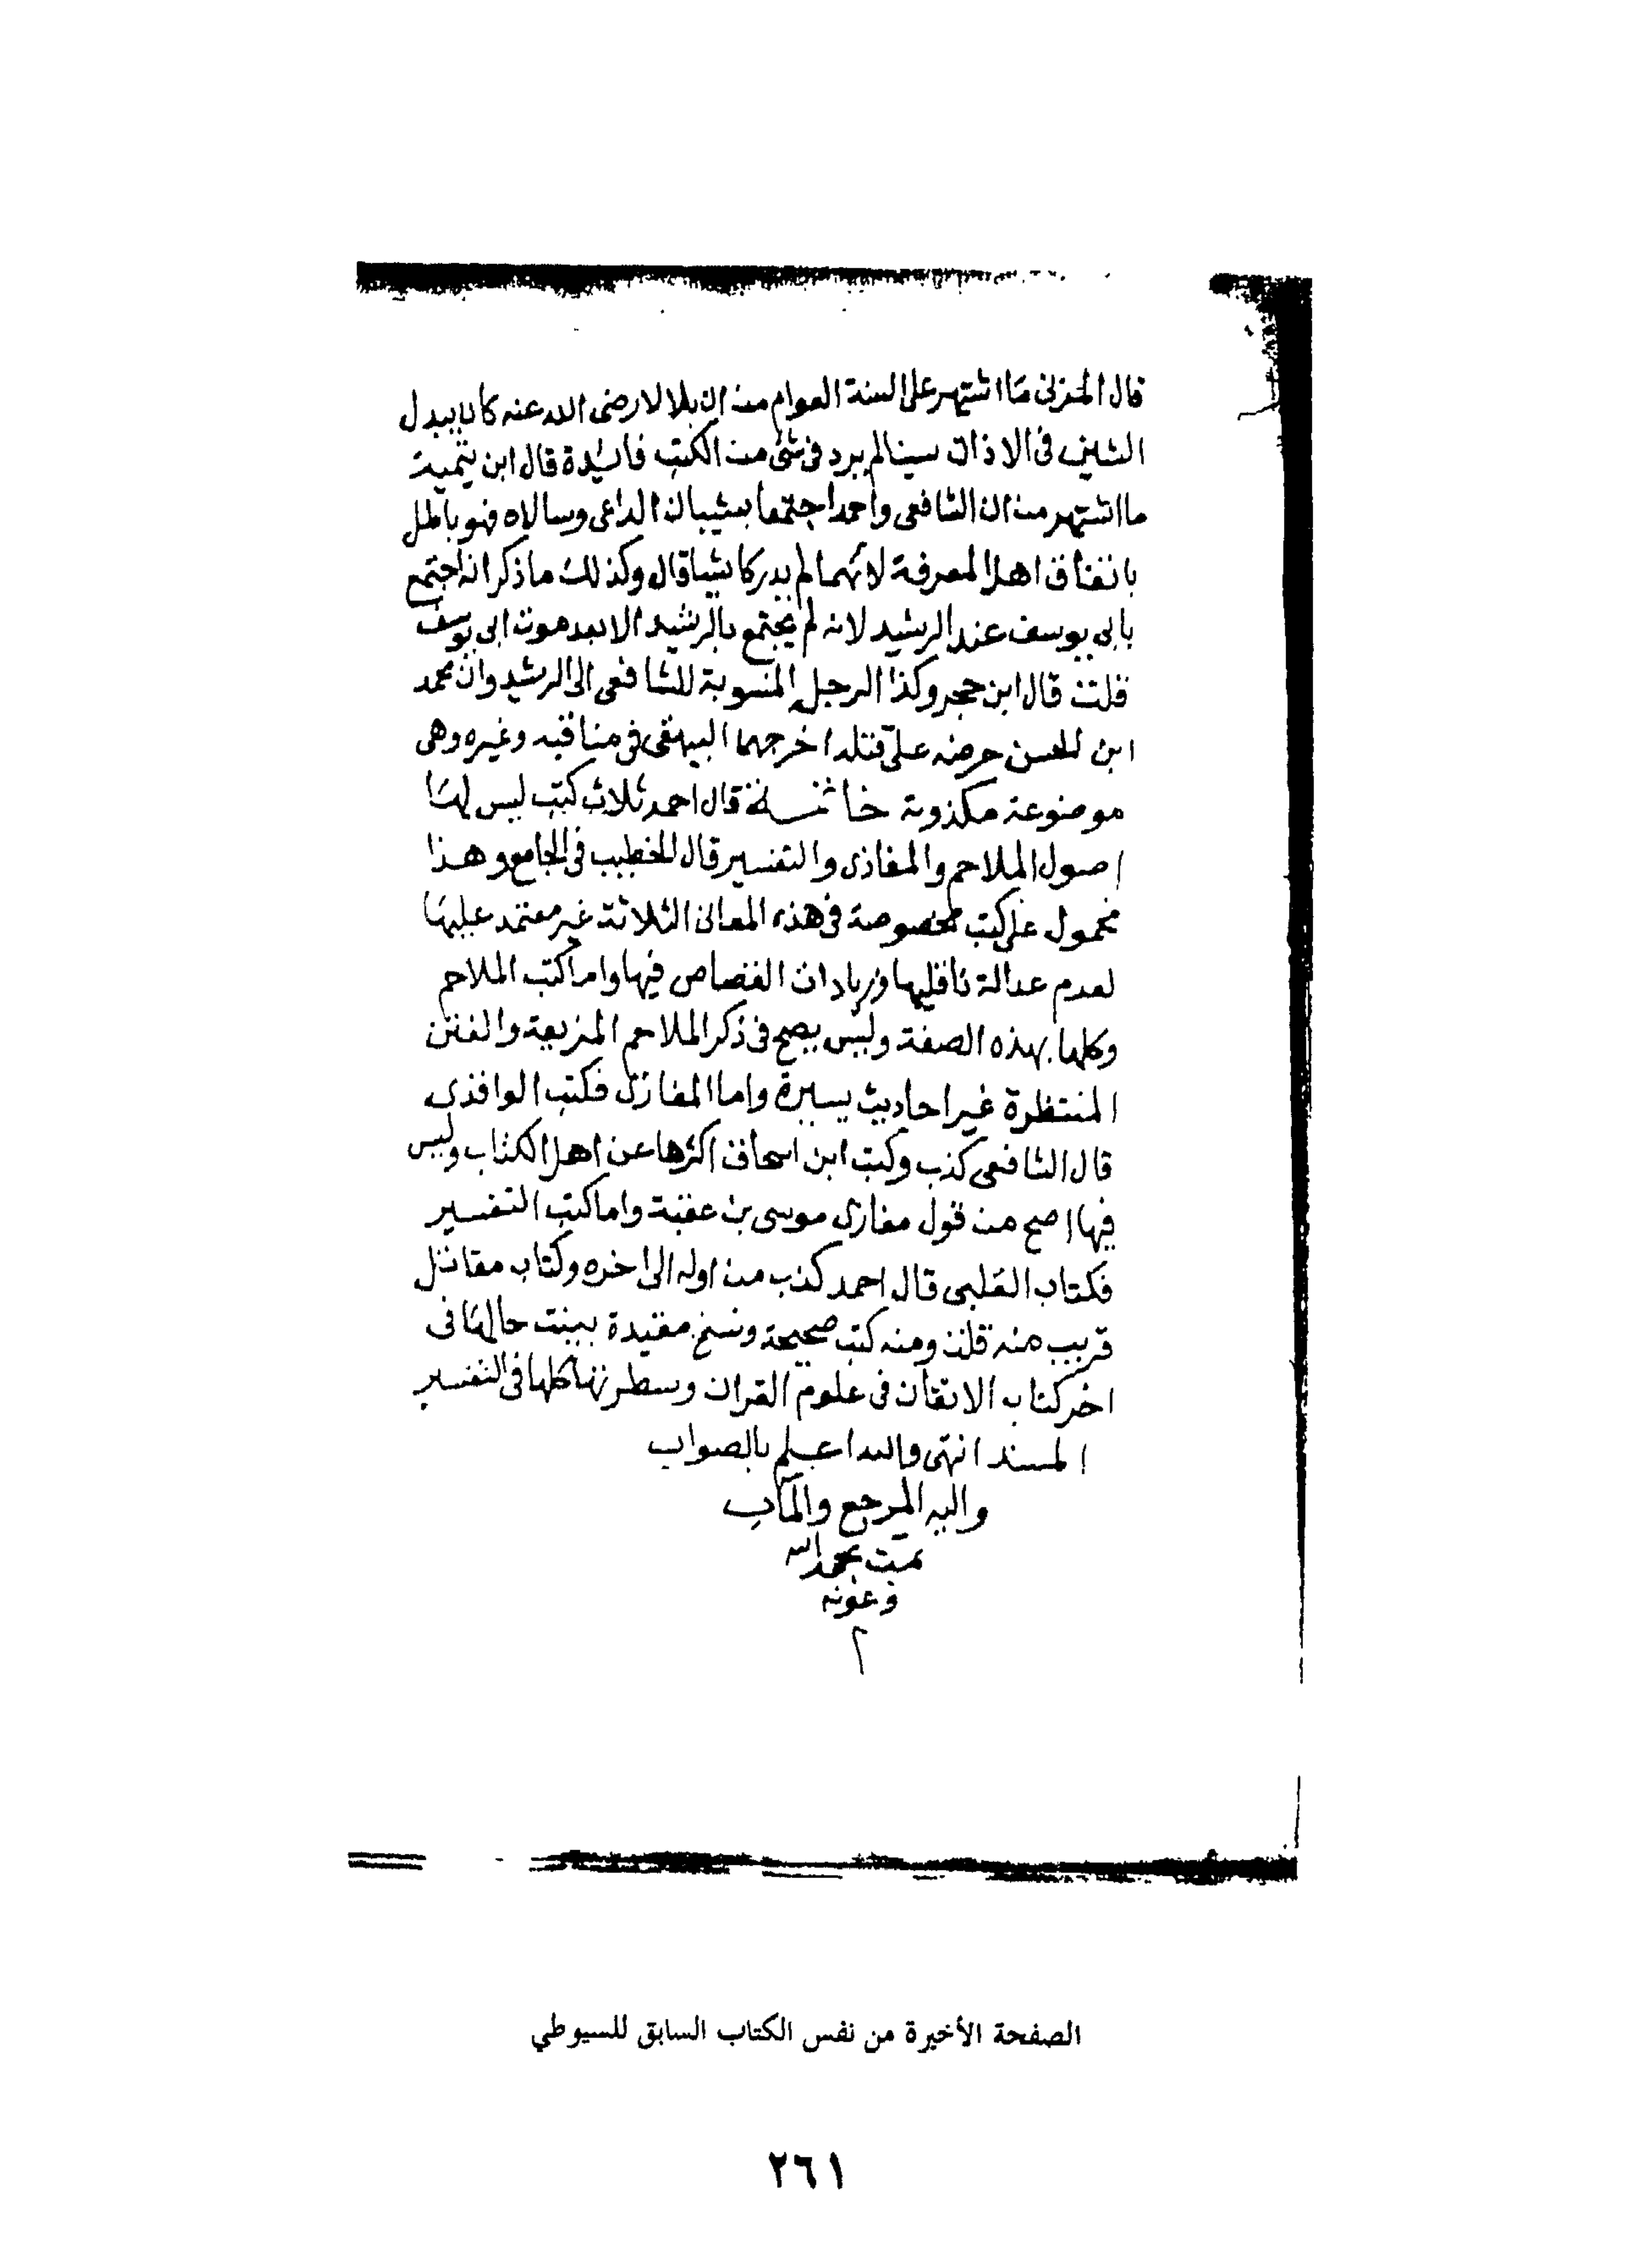 قال المزنى ما اشتهر على السنة العوام من ان بلالا رضى الله عنه كان يبدل
الشين فى الاذان سينا لم يرد فى شئ من الكتب فائدة قال ابن تيمية
ما اشتهر من ان الشافعى واحمد اجتمعا بشيبان الراعى وسالاه فهو باطل
باتفاق اهل المعرفة لانهما لم يدركا شيبا قال وكذلك ما ذكر انه اجتمع
بابى يوسف عند الرشيد لانه لم يجتمع بالرشيد الا بعد موت ابى يوسف
قلت قال ابن حجر وكذا الرحلة المنسوبة للشافعى الى الرشيد وان محمد
ابن الحسن حرضه على قتله اخرجهما البيهقى فى مناقبه وغيره وهى
موضوعة مكذوبة خاتمة قال احمد ثلاث كتب ليس لها
اصول الملاحم والمغازى والتفسير قال الخطيب فى الجامع وهذا
محمول على كتب مخصوصة فى هذه المعانى الثلاثة غير معتمد عليها
لعدم عدالة ناقليها وزيادات القصاص فيها واما كتب الملاحم
وكلها بهذه الصفة وليس يصح فى ذكر الملاحم المزيعة والفتن
المنتظرة غير احاديث يسيرة واما المغازى فكتب الواقدى
قال الشافعى كذب وكتب ابن اسحاق اكثرها عن اهل الكتاب وليس
فيها اصح من قول مغازى موسى بن عقبة واما كتب التفسير
فكتاب الكلبى قال احمد كذب من اوله الى اخره وكتاب مقاتل
قريب منه قلت ومنه كتب صحيحة ونسخ مفيدة بينت حالها فى
اخر كتاب الاتقان فى علوم القران وسطرتها كلها فى التفسير
المسند انتهى والله اعلم بالصواب
واليه المرجع والمآب
تمت بحمد الله
وعونه
م
الصفحة الأخيرة من نفس الكتاب السابق للسيوطي
٢٦١